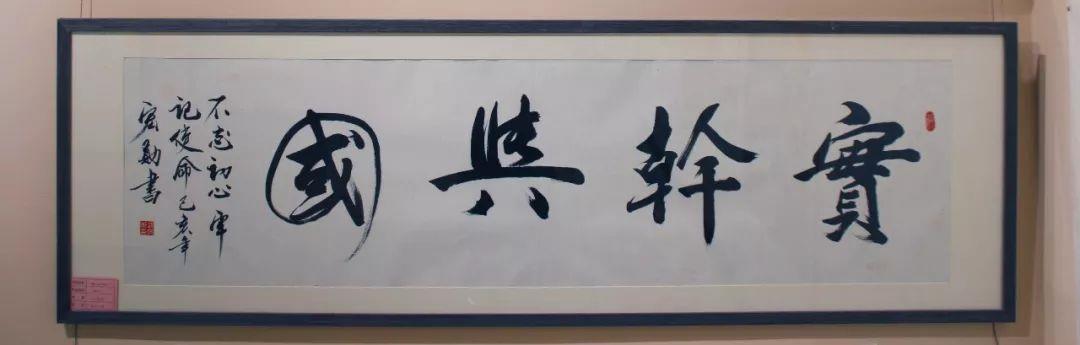 實幹興國
不忘初心牢
記使命己亥年
宏勛書